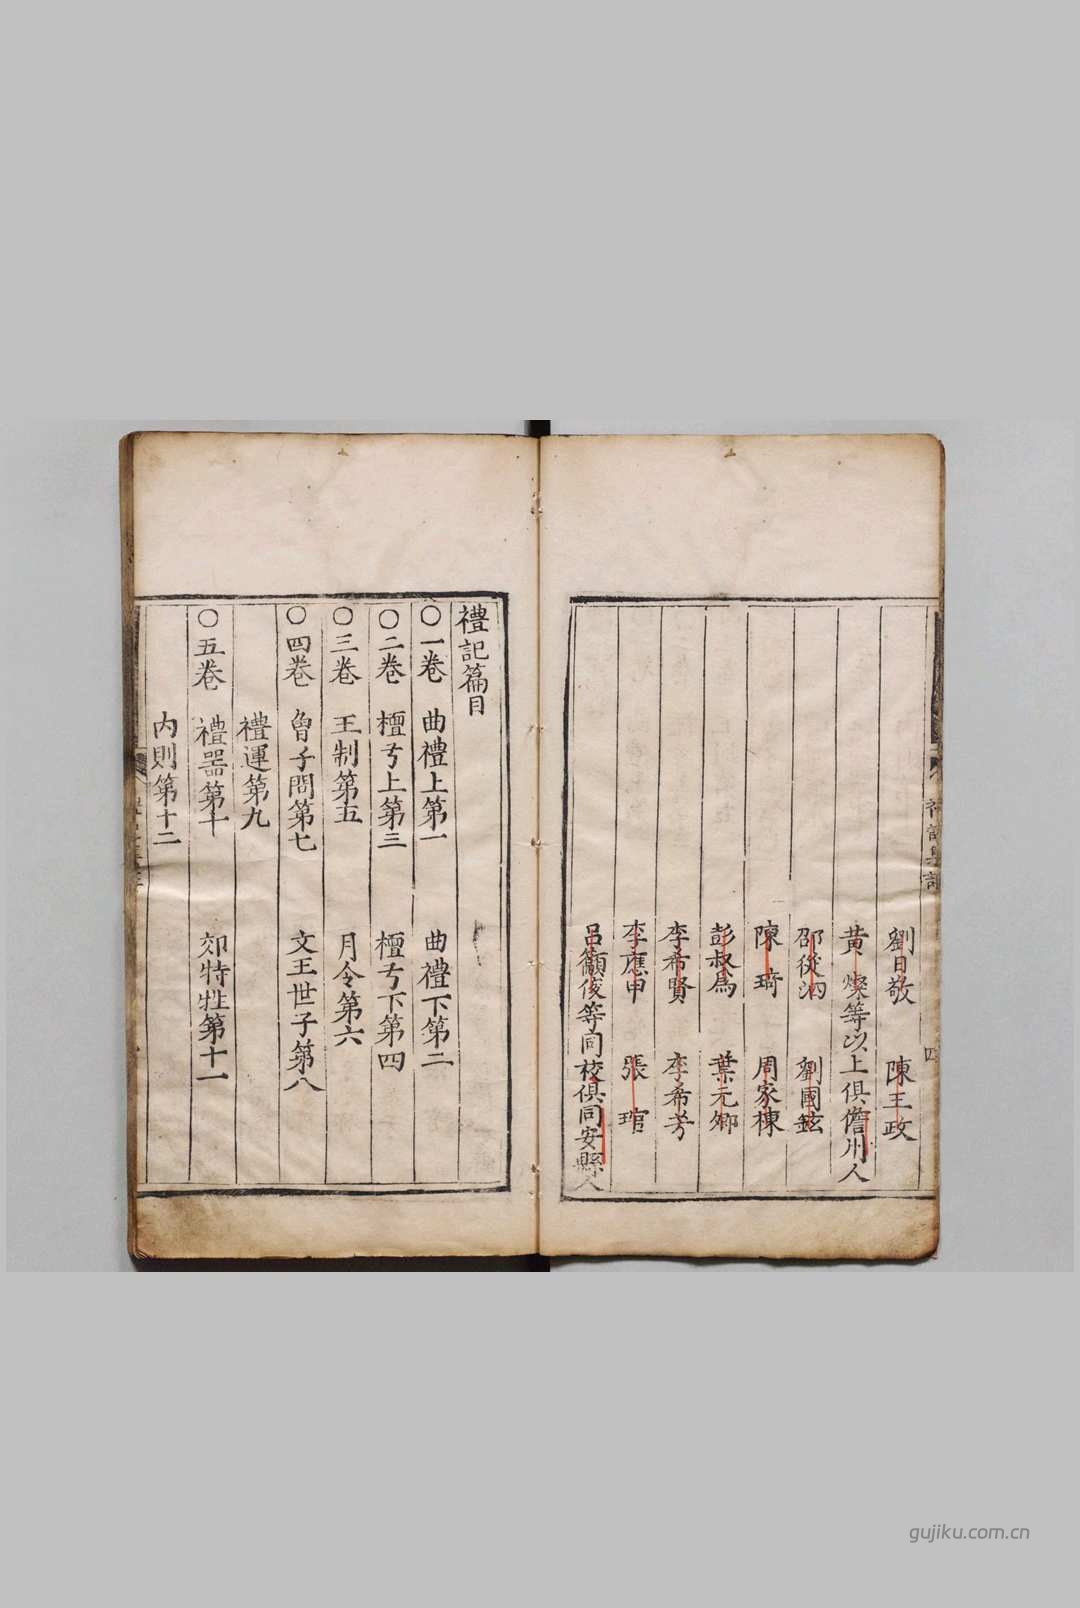 劉日敬　陳王政
黃　燦等以上俱儋州人
邵從泗　劉國鉉
陳　琦　周家棟
彭叔爲　葉元卿
李希賢　李希芳
李應申　張　琯
呂籲俊等同校俱同安縣人
四
禮記篇目
○一卷　曲禮上第一　曲禮下第二
○二卷　檀弓上第三　檀弓下第四
○三卷　王制第五　月令第六
○四卷　曾子問第七　文王世子第八
禮運第九
○五卷　禮器第十　郊特牲第十一
內則第十二
gujiku.com.cn